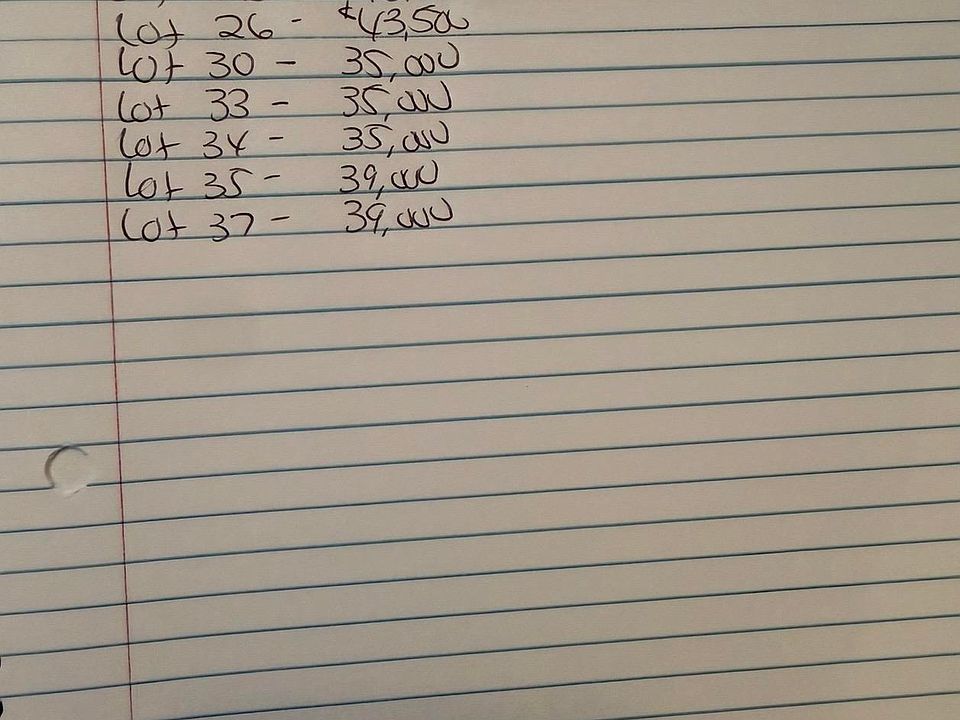 Lot 26 - $43,500
Lot 30 - 35,000
Lot 33 - 35,000
Lot 34 - 35,000
Lot 35 - 39,000
Lot 37 - 39,000